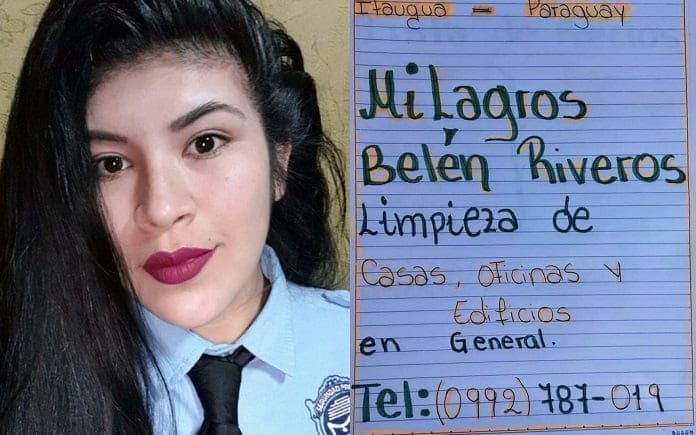 Itaugua = Paraguay
MiLagros
Belén Riveros
Limpieza de
Casas, oficinas y
Edificios
en General.
Tel: (0992) 787-019